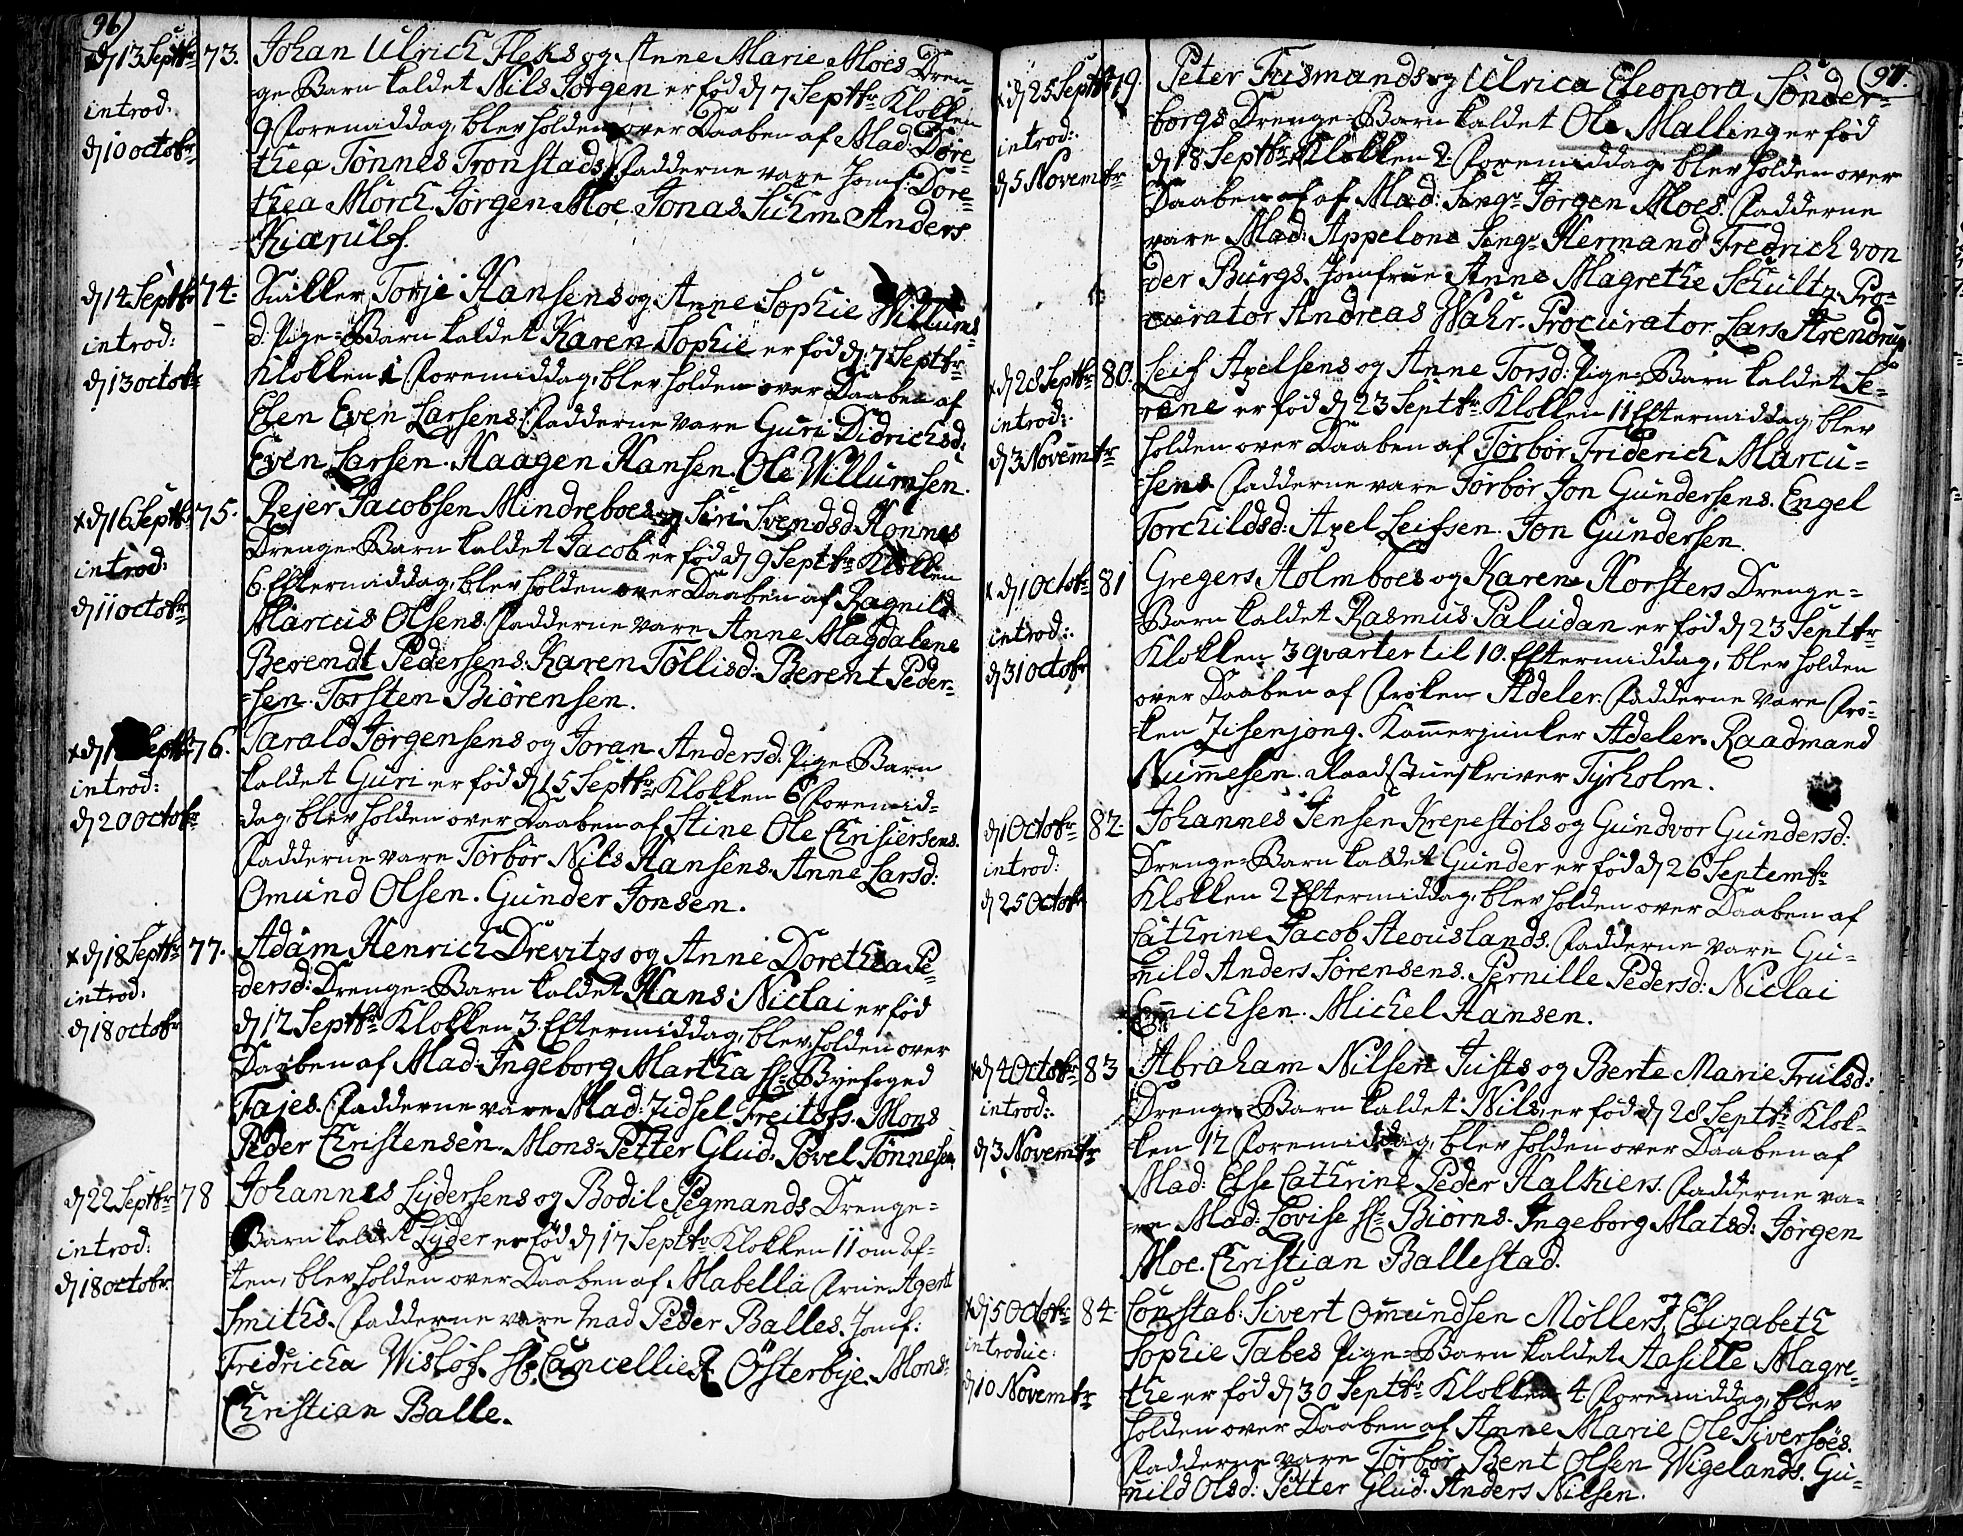 96)
d 13 Septbr 73. Johan Ulrich Fleks og Anne Marie Moes Dren-
introd: -ge Barn kaldet Nils Jørgen er fød d 7 Septbr Klokken
d 10 octobr 9 Foremiddag, blev holden over Daaben af Mad: Dore-
thea Tønnes Tronstads, Fadderne vare Jomf: Dore-
thea Mørch. Jørgen Moe. Jonas Suhm. Anders
Kiærulf.
d 14 Septbr 74. Snikker Torje Hansens og Anne Sophie Willums
introd: d. Pige-Barn kaldet Karen Sophie er fød d 7 Septbr
d 13 octobr Klokken 1 Foremiddag, blev holden over Daaben af
Elen Even Larsens. Fadderne vare Guri Didrichsd:
Even Larsen. Haagen Hansen. Ole Willumsen.
x d 16 Septbr 75. Rejer Jacobsen Mindreboes og Siri Svendsd. Honnes
introd: Drenge-Barn kaldet Jacob er fød d 9 Septbr Klokken
d 11 octobr 6 Eftermiddag, blev holden over Daaben af Ragnild
Marcus Olsens. Fadderne vare Anne Magdalene
Berendt Pedersens. Karen Tøllisd: Berent Peder-
-sen. Torsten Biørensen.
x d 1 Septbr 76. Tarald Jørgensens og Joran Andersd. Pige-Barn
introd: kaldet Guri er fød d 15 Septbr Klokken 6 Foremid-
d 20 octobr dag, blev holden over Daaben af Stine Ole Chrisiersens.
Fadderne vare Torbor Nils Hansens. Anne Larsd:
Omund Olsen. Gunder Jonsen.
x d 18 Septbr 77. Adam Henrich Drevitzs og Anne Dorethea Pe-
introd. -dersd: Drenge-Barn kaldet Hans: Niclai er fød
d 18 octobr d 12 Septbr Klokken 3. Eftermiddag, blev holden over
Daaben af Mad: Ingeborg Martha Hr Byefoged
Fajes. Fadderne vare Mad: Zidsel Freitofs. Mons
Peder Christensen. Mons: Petter Glud. Povel Tønnesen
d 22 Septbr 78 Johannes Lydersens og Bodil Pegmands Drenge-
introd: Barn kaldet Lyder er fød d 17 Septbr Klokken 11 om Af-
d 18 octobr. -ten, blev holden over Daaben af Mabella Frue Agent
Smiths. Fadderne vare Mad Peder Balles. Jomf:
Fredricha Wisløf. Hr. Cancellie R. Østerbye. Mons:
Christian Balle.
97.
x d 25 Septbr 79. Peter Tusmands og Ulrica Eleonora Sønder-
introd: -borgs Drenge-Barn kaldet Ole Malling er fød
d 5 Novembr d 18 Septbr Klokken 2. Foremiddag, blev holden over
Daaben af af Mad: Sengr Jørgen Moes. Fadderne
vare Mad: Appelone Sengr Hermand Fredrich von
der Burgs. Jomfrue Anne Magrethe Schultz. Pro-
curator Andreas Wahr. Procurator Lars Arendrup
x d 28 Septbr 80. Leif Axelsens og Anne Torsd: Pige-Barn kaldet Se-
introd: -rene er fød d 23 Septbr Klokken 11 Eftermiddag, blev
d 3 Novembr holden over Daaben af Torbor Friderich Marcu-
-sens. Fadderne vare Torbor Jon Gundersens. Engel
Torchildsd: Axel Leifsen. Jon Gundersen.
x d 1 Octobr 81 Gregers Holmboes og Karen Horsters Drenge-
introd: Barn kaldet Rasmus Paludan er fød d 23 Septbr
d 31 octobr Klokken 3 qvarter til 10. Eftermiddag, blev holden
over Daaben af Frøken Adeler. Fadderne vare Frø-
ken Zisenjong. Kammerjunker Adeler. Raadmand
Nummesen. Raadstueskriver Tyrholm.
d 1 Octobr 82. Johannes Jensen Krepestols og Gundvor Gundersd:
introd: Drenge-Barn kaldet Gunder er fød d 26 Septembr
d 25 Octobr Klokken 2 Eftermiddag, blev holden over Daaben af
Cathrine Jacob Steouslands. Fadderne vare Gu-
-nild Anders Sørensens. Pernille Pedersd: Niclai
Emichsen. Michel Hansen.
x d 4 Octobr 83 Abraham Nilsen Justs og Berte Marie Trulsd:
introd: Drenge-Barn kaldet Nils er fød d 28 Septbr Klok-
d 3 Novembr ken 12 Foremiddag, blev holden over Daaben af
Mad: Else Cathrine Peder Kalkiers. Fadderne va-
-re Mad: Lovise Hr Biørns. Ingeborg Matsd: Jørgen
Moe. Christian Ballestad.
x d 5 Octobr 84. Constab: Sivert Omundsen Møllers, Elizabeth
introduc: Sophie Tabes Pige-Barn kaldet Aasille Magre-
d 10 Novembr the er fød d 30 Septbr Klokken 4 Foremiddag, blev
holden over Daaben af Anne Marie Ole Siversøes.
Fadderne vare Torbor Bent Olsen Wigelands. Gu-
nild Olsd: Petter Glud. Anders Nilsen.